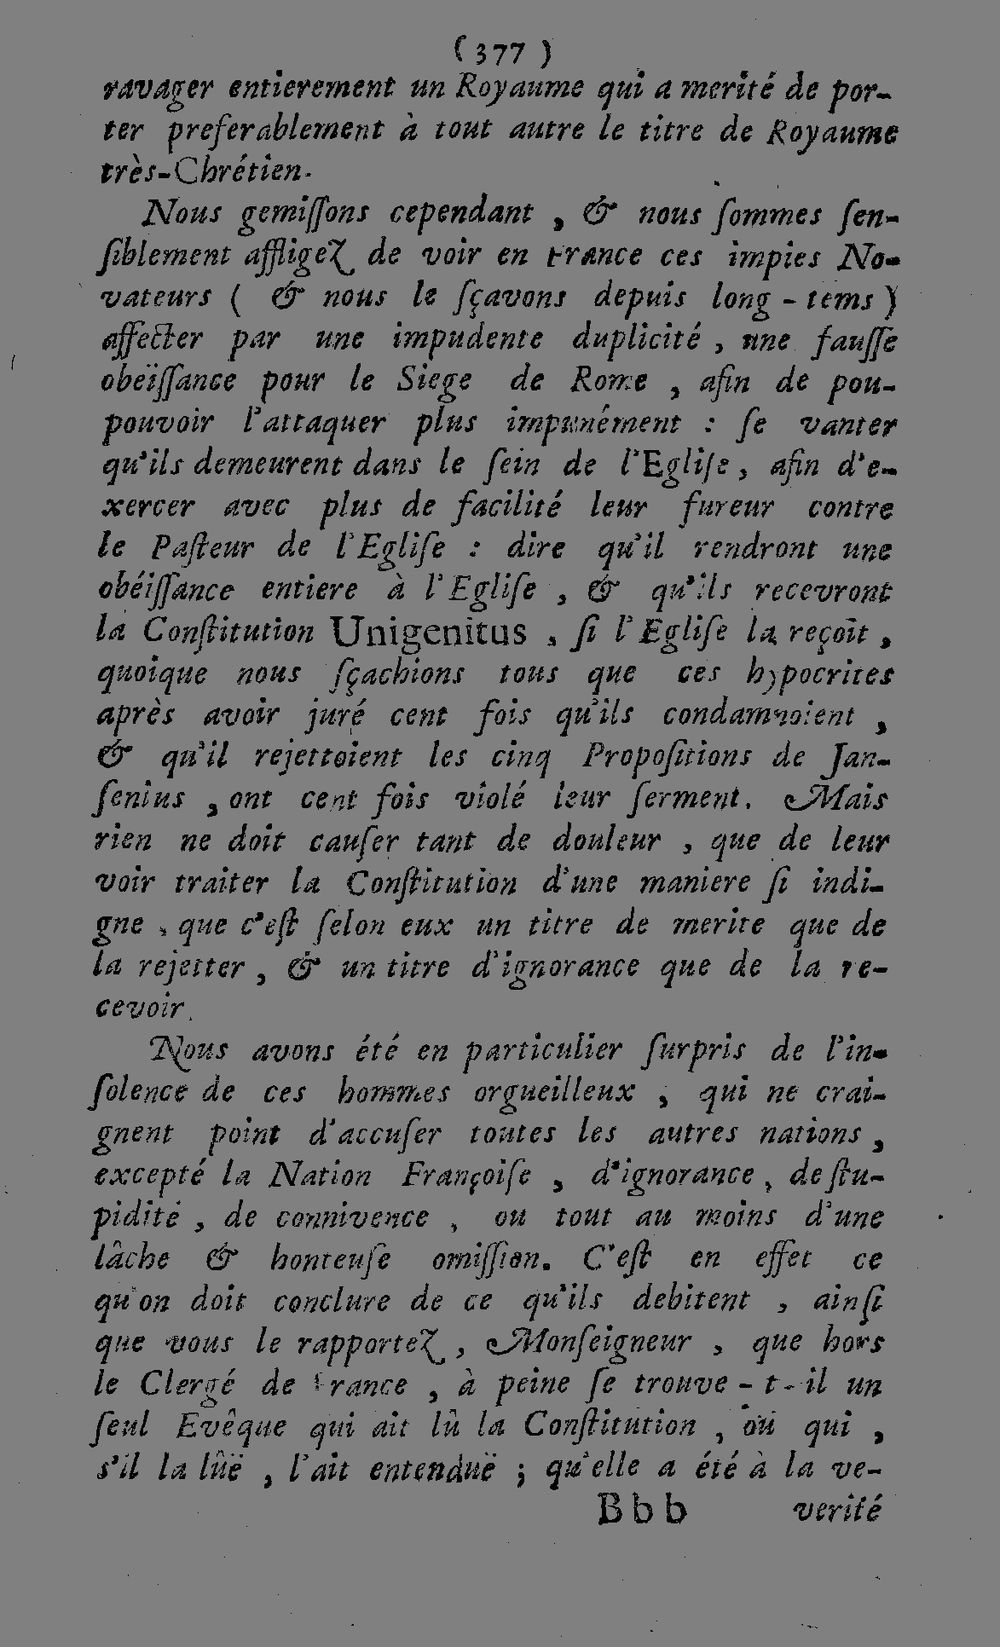 ( 377 )
ravager entierement un Royaume qui a merité de por-
ter preferablement à tout autre le titre de Royaume
très-Chrétien.
Nous gemiſſons cependant , & nous ſommes ſen-
ſiblement affligez de voir en France ces impies No-
vateurs ( & nous le ſçavons depuis long - tems )
affecter par une impudente duplicité , une fauſſe
obeïſſance pour le Siege de Rome , afin de pou-
pouvoir l'attaquer plus impunément : ſe vanter
qu'ils demeurent dans le ſein de l'Egliſe , afin d'e-
xercer avec plus de facilité leur fureur contre
le Paſteur de l'Egliſe : dire qu'il rendront une
obéiſſance entiere à l'Egliſe , & qu'ils recevront
la Conſtitution Unigenitus , ſi l'Egliſe la reçoit ,
quoique nous ſçachions tous que ces hypocrites
après avoir juré cent fois qu'ils condamnoient ,
& qu'il rejettoient les cinq Propoſitions de Jan-
ſenius , ont cent fois violé leur ſerment. Mais
rien ne doit cauſer tant de douleur , que de leur
voir traiter la Conſtitution d'une maniere ſi indi-
gne , que c'eſt ſelon eux un titre de merite que de
la rejetter , & un titre d'ignorance que de la re-
cevoir.
Nous avons été en particulier ſurpris de l'in-
ſolence de ces hommes orgueilleux , qui ne crai-
gnent point d'accuſer toutes les autres nations ,
excepté la Nation Françoiſe , d'ignorance , de ſtu-
pidité , de connivence , ou tout au moins d'une
lâche & honteuſe omiſſion. C'eſt en effet ce
qu'on doit conclure de ce qu'ils debitent , ainſi
que vous le rapportez , Monſeigneur , que hors
le Clergé de France , à peine ſe trouve - t - il un
ſeul Evêque qui ait lû la Conſtitution , ou qui ,
s'il la lûë , l'ait entenduë ; qu'elle a été à la ve-
Bbb verité